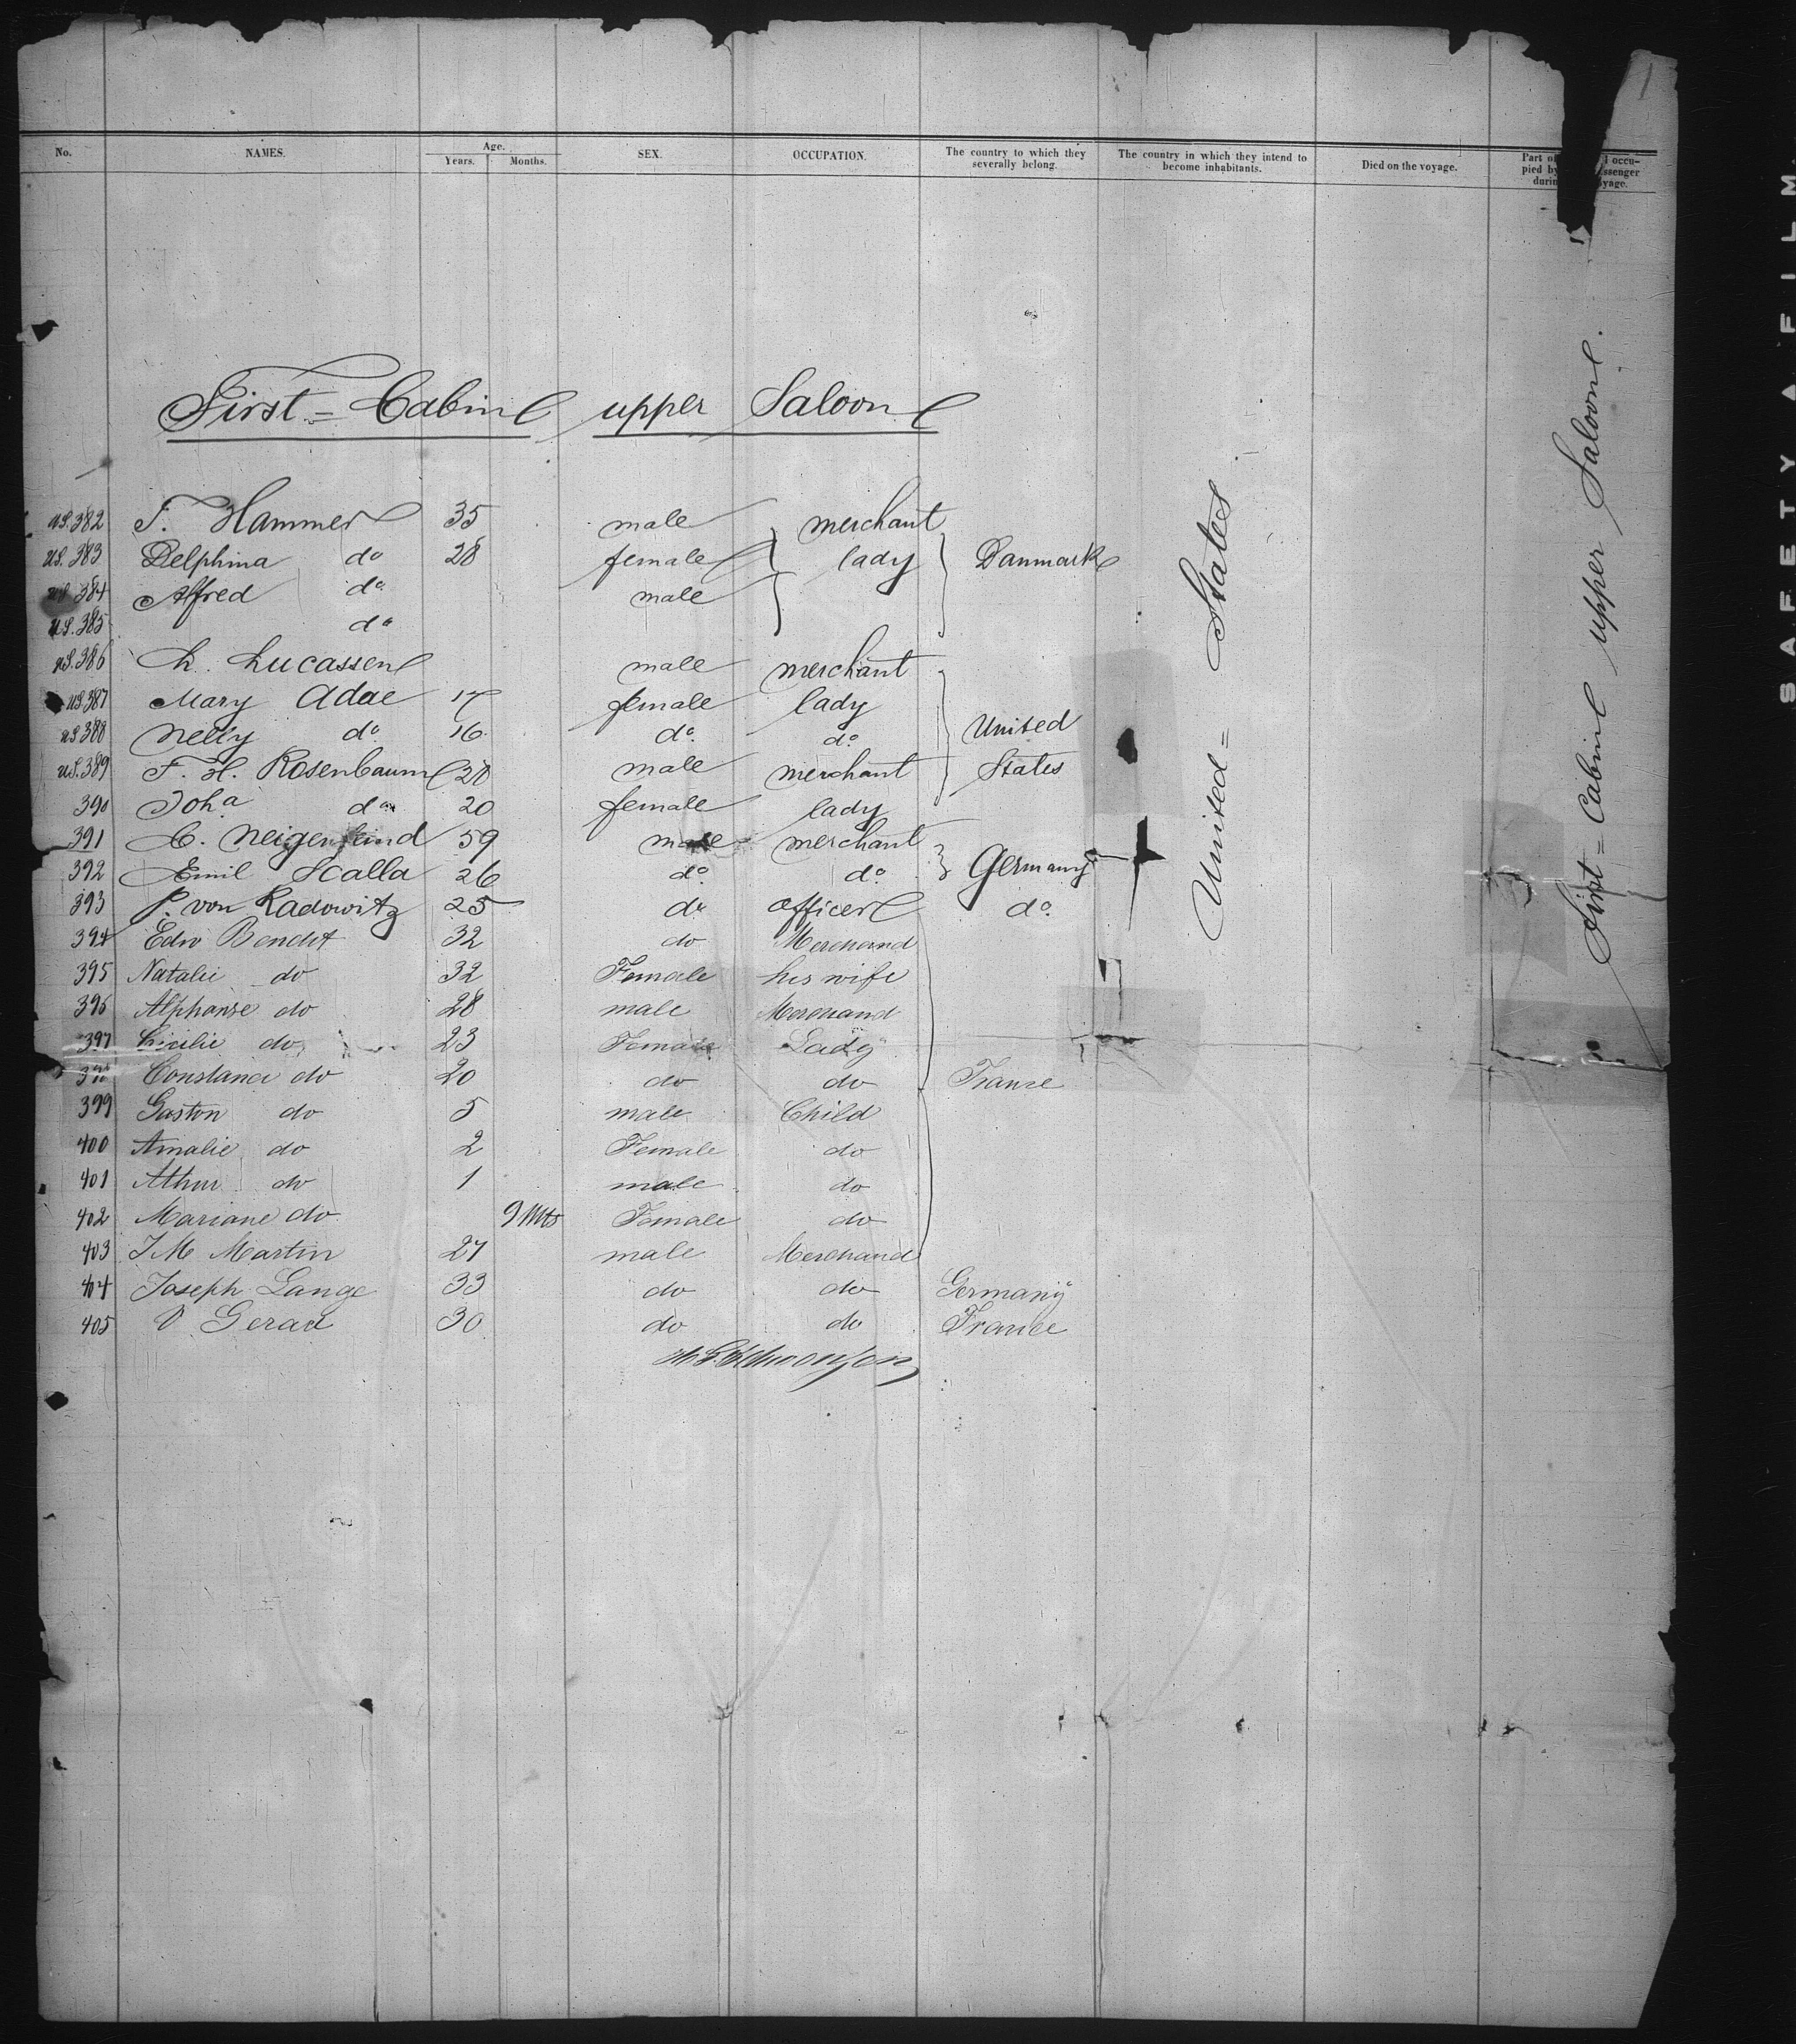 1
No. NAMES. Age. Years. Months. SEX. OCCUPATION. The country to which they severally belong. The country in which they intend to become inhabitants. Died on the voyage. Part of occupied by passenger during voyage.
First = Cabin upper Saloon
US. 382 F. Hammer 35 male merchant
US. 383 Delphina do 28 female lady Danmark
US 384 Alfred do male
US. 385 do
US. 386 L. Lucassen male merchant
US. 387 Mary Adae 17 female lady
US 388 Nelly do 16 do. do. United
US. 389 F. H. Rosenbaum 28 male merchant States
390 Joha do 20 female lady
391 C. Neigenfeind 59 male merchant
392 Emil Scalla 26 do do. Germany
393 P. von Radowitz 25 do officer do.
394 Edw Bendit 32 do Merchand
395 Natalie do 32 Female his wife
396 Alphonse do 28 male Merchand
397 Cicilie do 23 Female Lady
398 Constance do 20 do do France
399 Gaston do 5 male Child
400 Amalie do 2 Female do
401 Athur do 1 male do
402 Mariane do 9 Mts Female do
403 J M Martin 27 male Merchand
404 Joseph Lange 33 do do Germany
405 V 30 do do France
United = States
First = Cabin upper Saloon.
SAFETY A FILM